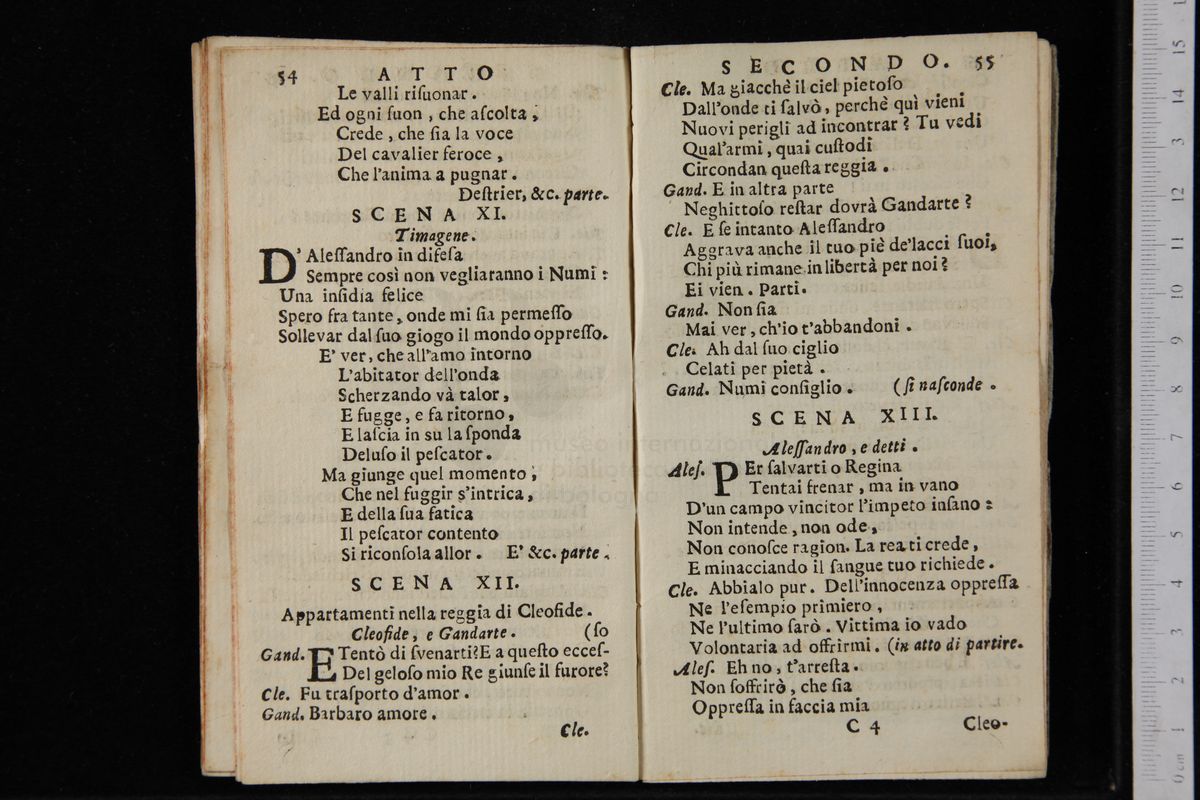 54 ATTO
Le valli riſuonar.
Ed ogni ſuon, che aſcolta,
Crede, che ſia la voce
Del cavalier feroce,
Che l'anima a pugnar.
Deſtrier, &c. parte.
SCENA XI.
Timagene.
D'Aleſſandro in difeſa
Sempre così non vegliaranno i Numi:
Una inſidia felice
Spero fra tante, onde mi ſia permeſſo
Sollevar dal ſuo giogo il mondo oppreſſo.
E' ver, che all'amo intorno
L'abitator dell'onda
Scherzando và talor,
E fugge, e fa ritorno,
E laſcia in su la ſponda
Deluſo il peſcator.
Ma giunge quel momento,
Che nel fuggir s'intrica,
E della ſua fatica
Il peſcator contento
Si riconſola allor. E' &c. parte.
SCENA XII.
Appartamenti nella reggia di Cleofide.
Cleofide, e Gandarte. (ſo
Gand. E Tentò di ſvenarti? E a queſto ecceſ-
Del geloſo mio Re giunſe il furore?
Cle. Fu traſporto d'amor.
Gand. Barbaro amore.
Cle.
SECONDO. 55
Cle. Ma giacchè il ciel pietoſo
Dall'onde ti ſalvò, perchè quì vieni
Nuovi perigli ad incontrar? Tu vedi
Qual'armi, quai cuſtodi
Circondan queſta reggia.
Gand. E in altra parte
Neghittoſo reſtar dovrà Gandarte?
Cle. E ſe intanto Aleſſandro
Aggrava anche il tuo piè de'lacci ſuoi,
Chi più rimane in libertà per noi?
Ei vien. Parti.
Gand. Non ſia
Mai ver, ch'io t'abbandoni.
Cle. Ah dal ſuo ciglio
Celati per pietà.
Gand. Numi conſiglio. (ſi naſconde.
SCENA XIII.
Aleſſandro, e detti.
Aleſ. PEr ſalvarti o Regina
Tentai frenar, ma in vano
D'un campo vincitor l'impeto inſano:
Non intende, non ode,
Non conoſce ragion. La rea ti crede,
E minacciando il ſangue tuo richiede.
Cle. Abbialo pur. Dell'innocenza oppreſſa
Ne l'eſempio primiero,
Ne l'ultimo ſarò. Vittima io vado
Volontaria ad offrirmi. (in atto di partire.
Aleſ. Eh no, t'arreſta.
Non ſoffrirò, che ſia
Oppreſſa in faccia mia
C 4 Cleo-